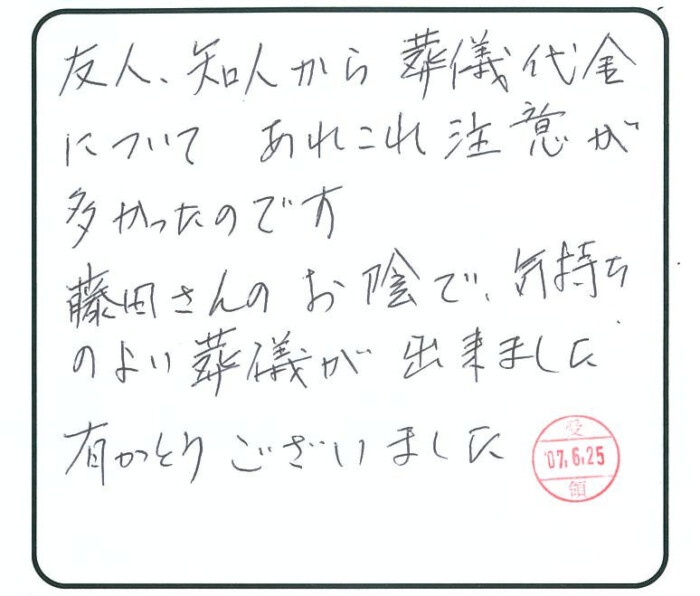 友人、知人から葬儀代金
について あれこれ注意が
多かったのです
藤田さんのお陰で、気持ち
のよい葬儀が出来ました
有かとりございました
受
'07.6.25
領